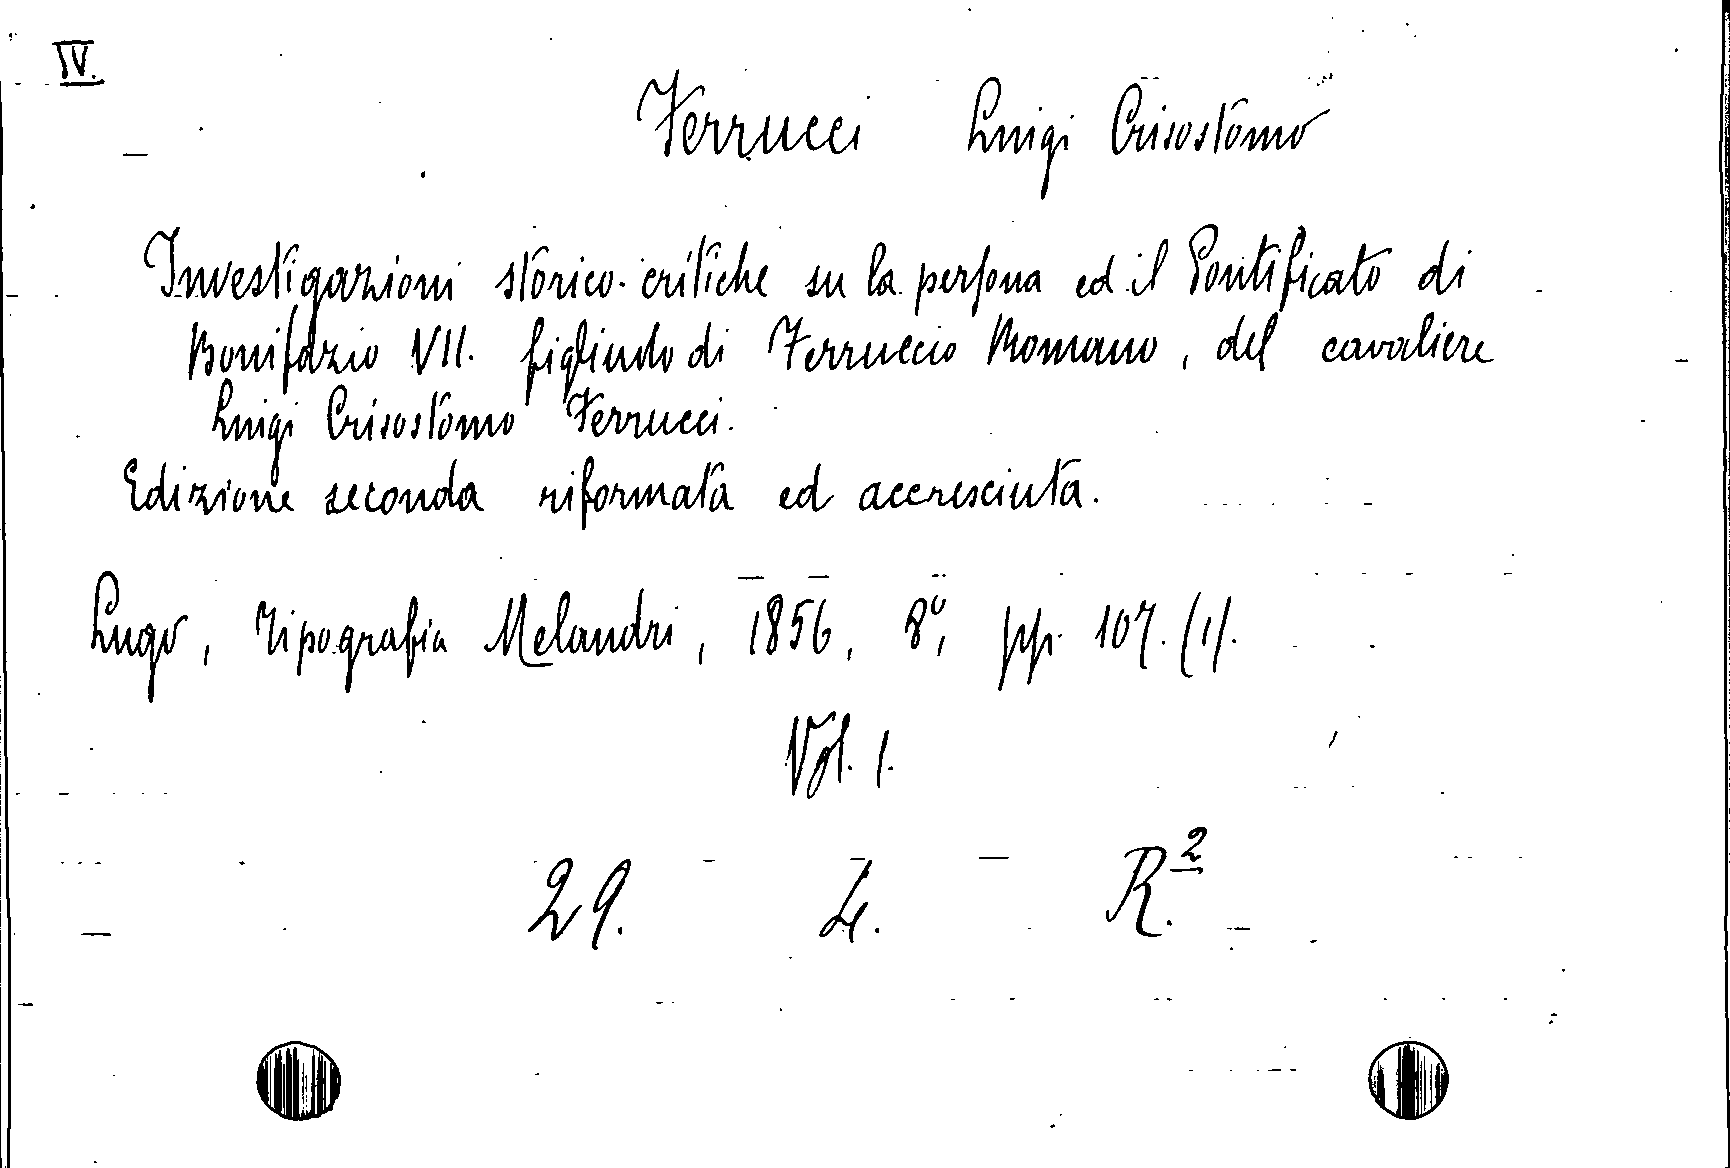 IV.
Ferrucci Luigi Crisostomo
Investigazioni storico-critiche su la persona ed il Pontificato di
Bonifazio VII. figliuolo di Ferruccio Romano, del cavaliere
Luigi Crisostomo Ferrucci.
Edizione seconda riformata ed accresciuta.
Lugo, Tipografia Melandri, 1856, 8º, pp. 107. (1).
Vol. 1.
29. R.2